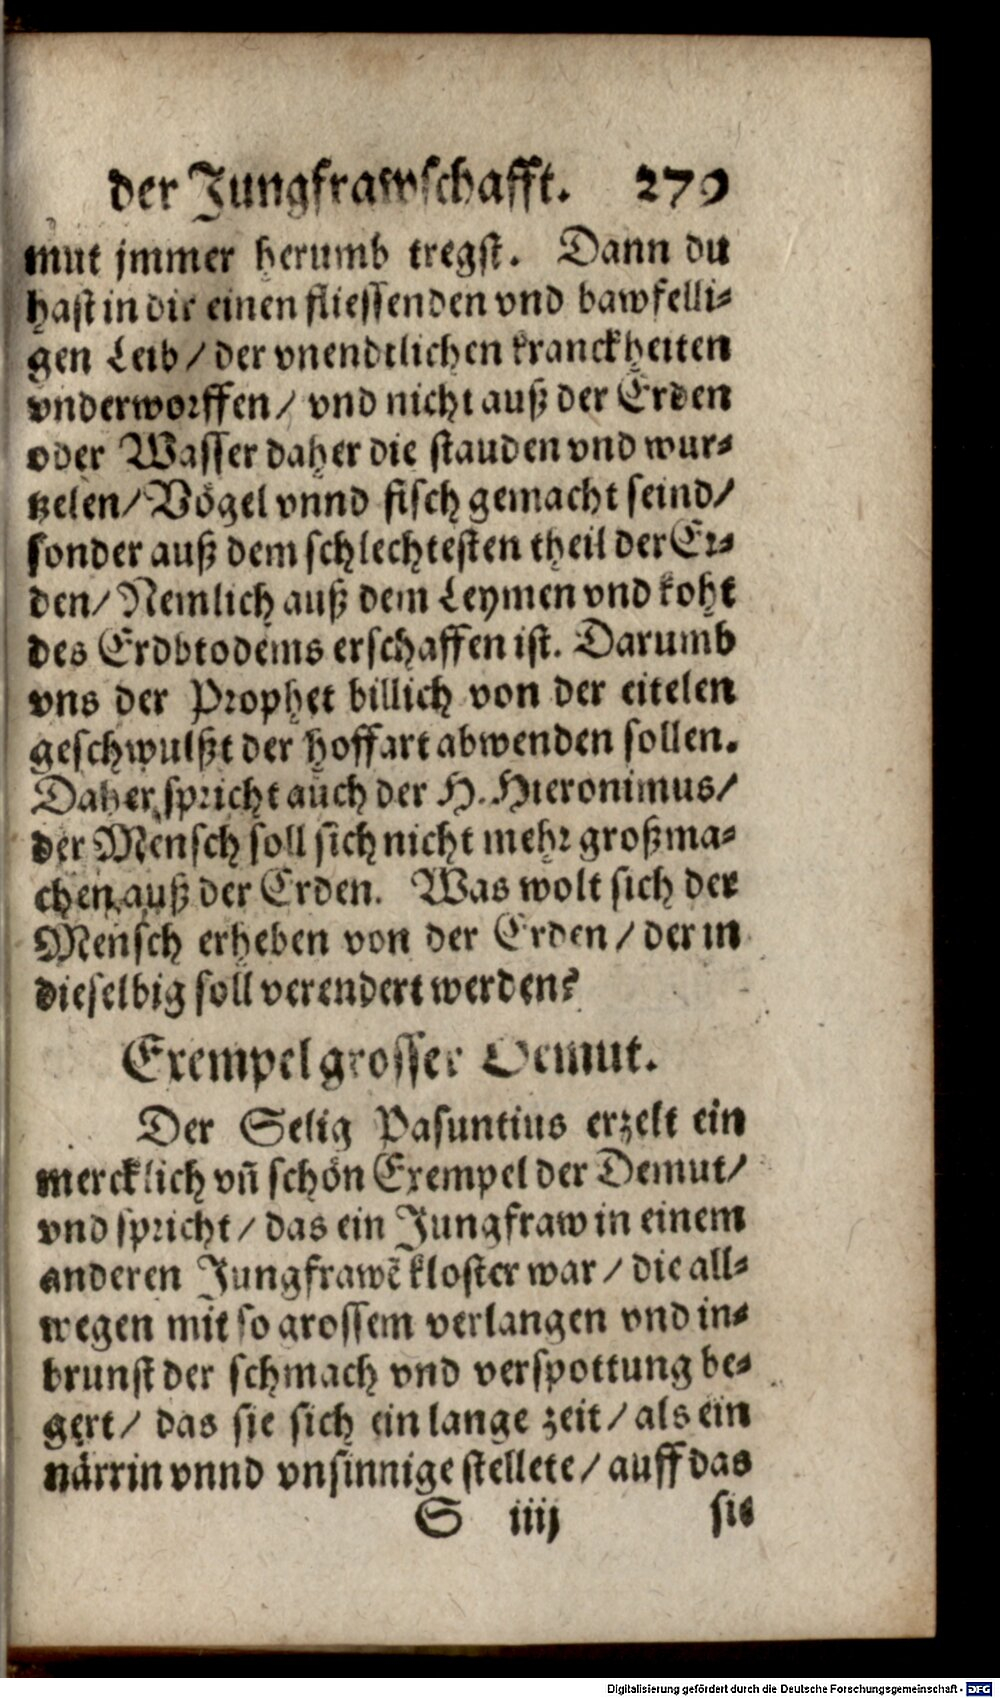 der Jungfrawschafft. 279
mut jmmer herumb tregst. Dann du
hast in dir einen fliessenden vnd bawfelli-
gen Leib / der vnendtlichen kranckheiten
vnderworffen / vnd nicht auß der Erden
oder Wasser daher die stauden vnd wur-
tzelen / Vögel vnnd fisch gemacht seind /
sonder auß dem schlechtesten theil der Er-
den / Nemlich auß dem Leymen vnd koht
des Erdbtodems erschaffen ist. Darumb
vns der Prophet billich von der eitelen
geschwulßt der hoffart abwenden sollen.
Daher spricht auch der H. Hieronimus /
der Mensch soll sich nicht mehr großma-
chen auß der Erden. Was wolt sich der
Mensch erheben von der Erden / der in
dieselbig soll verendert werden?
Exempel grosser Demut.
Der Selig Pasuntius erzelt ein
mercklich vñ schön Exempel der Demut /
vnd spricht / das ein Jungfraw in einem
anderen Jungfrawẽ kloster war / die all-
wegen mit so grossem verlangen vnd in-
brunst der schmach vnd verspottung be-
gert / das sie sich ein lange zeit / als ein
närrin vnnd vnsinnige stellete / auff das
S iiij sie
Digitalisierung gefördert durch die Deutsche Forschungsgemeinschaft - DFG